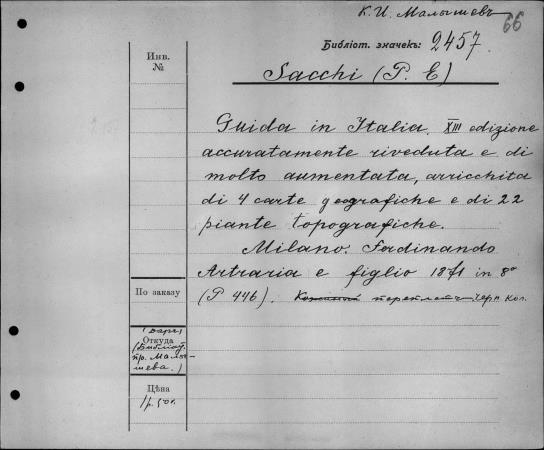 К. И. Малышевъ
66
Библіот. значекъ: 2457.
Инв.
№
Sacchi (P. E)
Guida in Italia. XIII edizione
accuratamente riveduta e di
molto aumentata, arricchita
di 4 carte geografiche e di 22
piante topografiche.
Milano. Ferdinando
Artraria e figlio 1871 in 8°
(P 446). Кожаный переплетъ черн кол.
По заказу
(Даръ)
Откуда
(Библіот.
пр. Малы-
шева.)
Цѣна
1 р. 50 к.